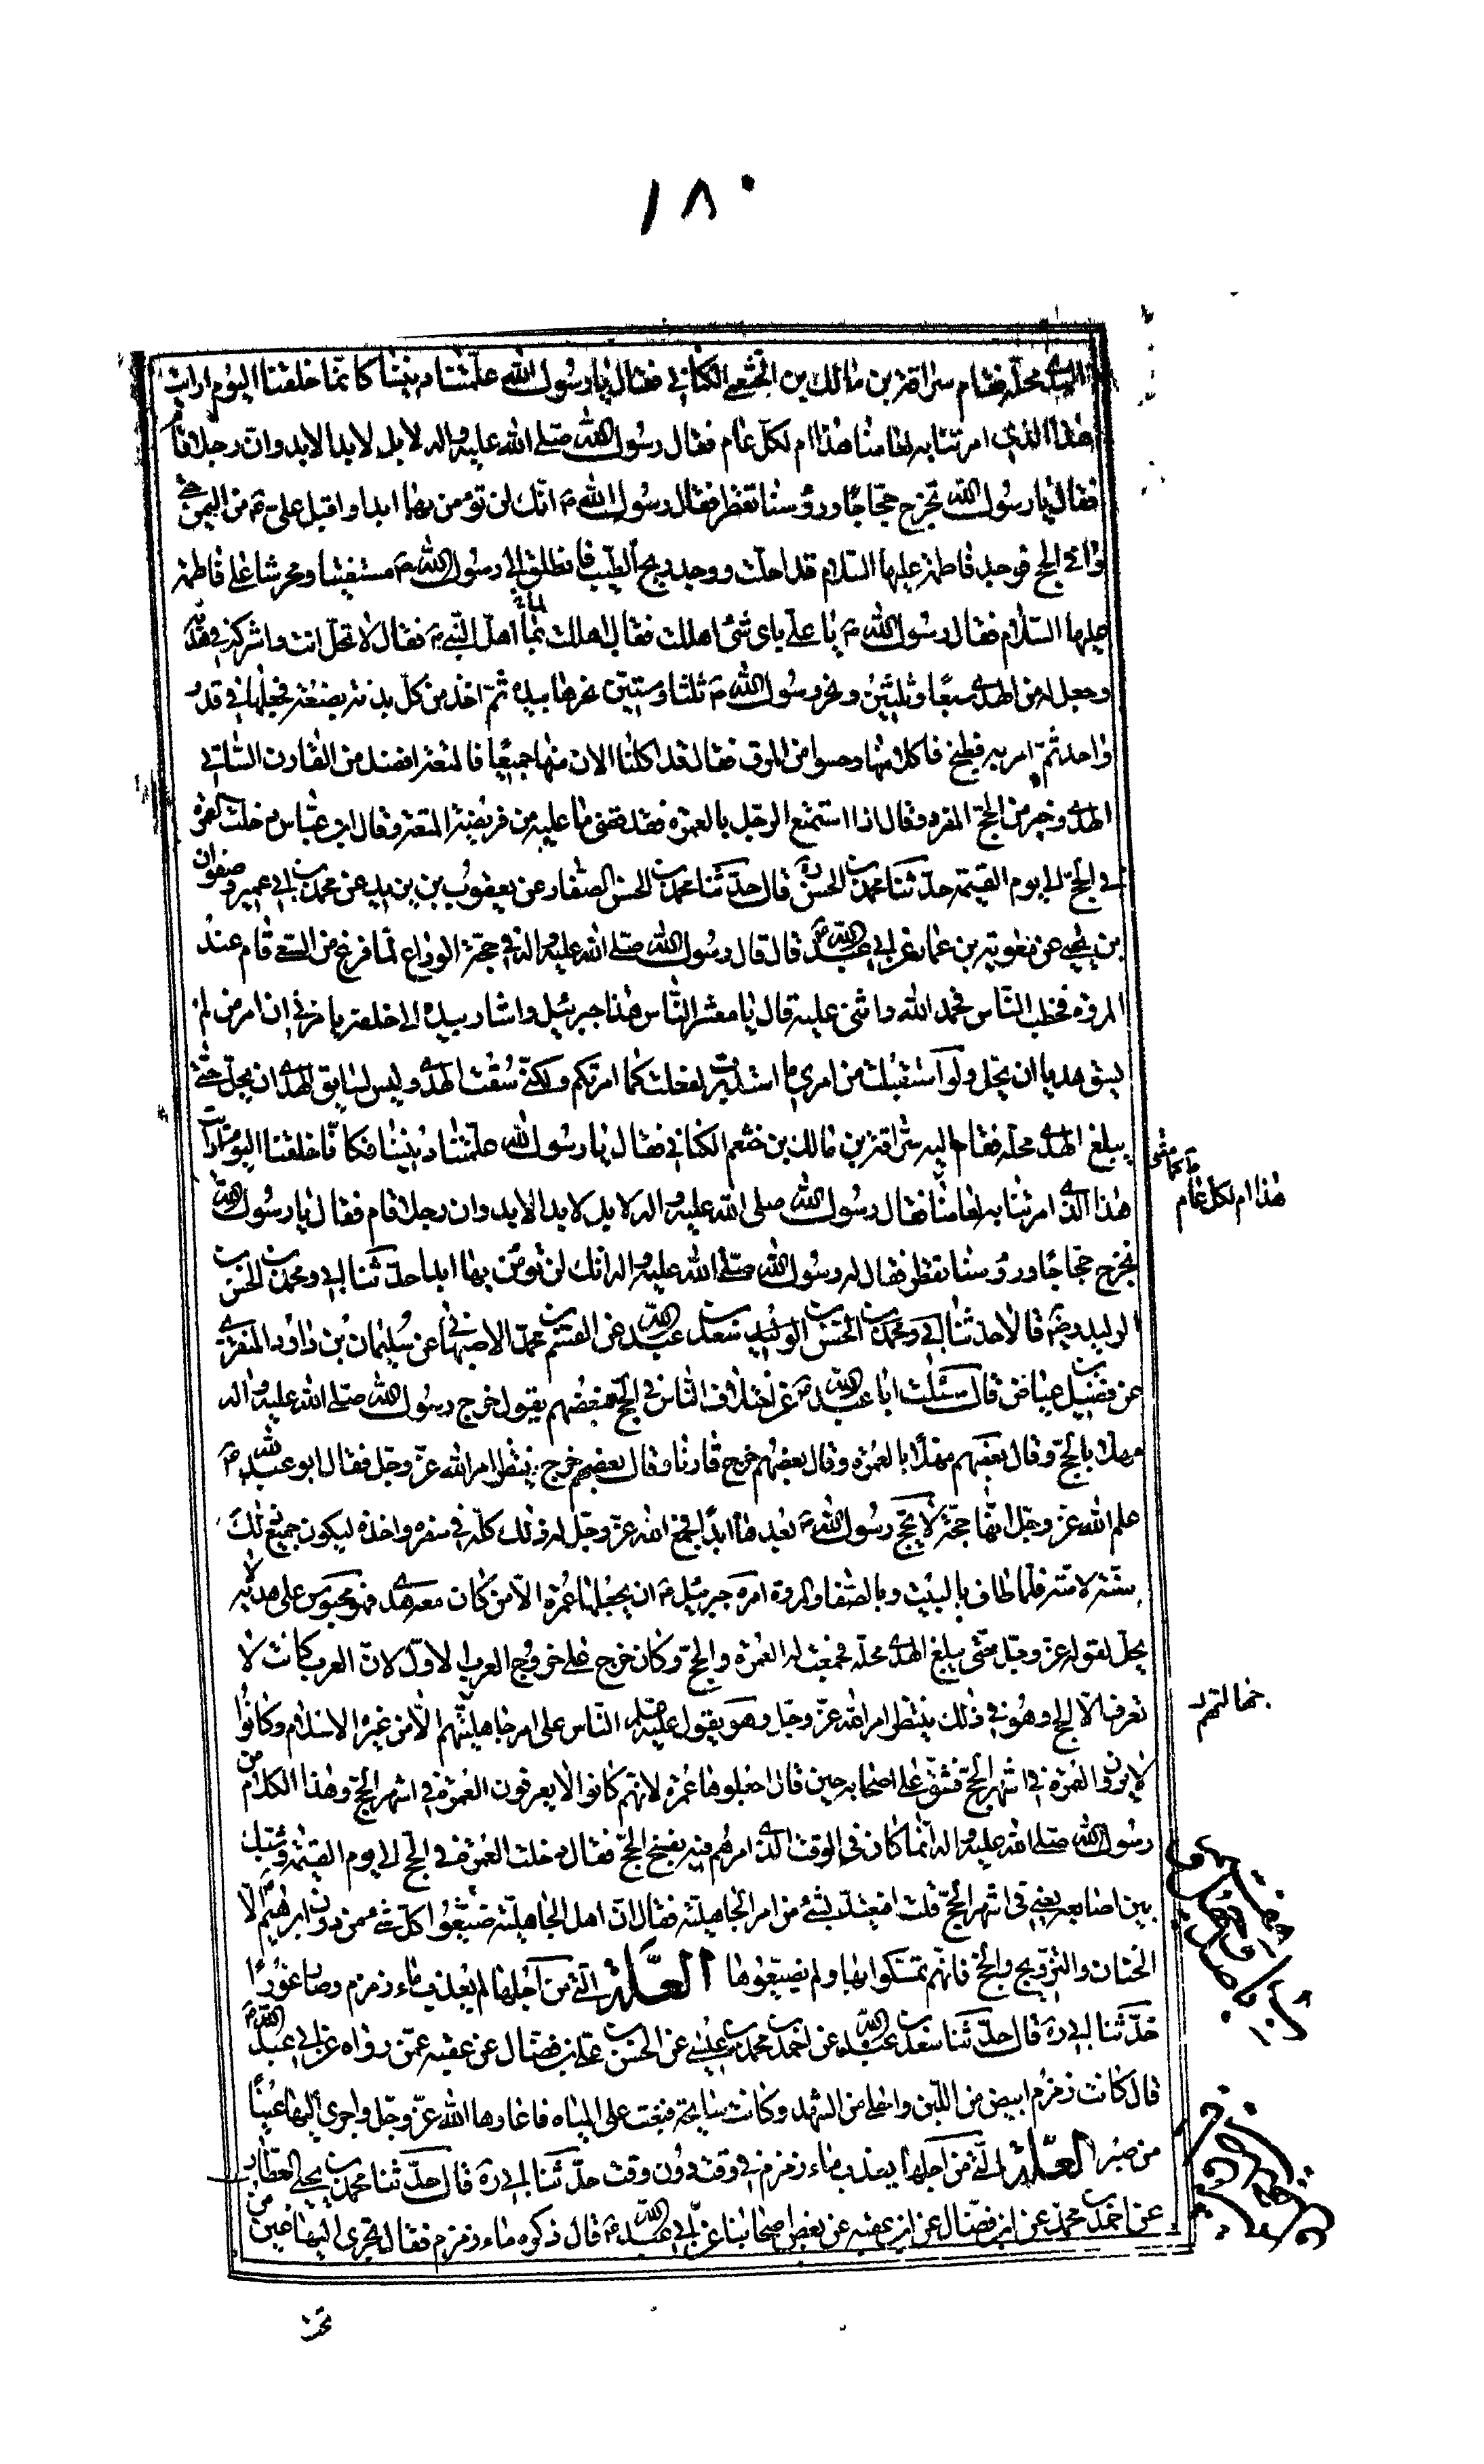 ١٨٠
الهدى محله فقام سراقة بن مالك بن جشعم الكنانى فقال يا رسول الله علمتنا ديننا كانما خلقنا اليوم ارايت
هذا الذى امرتنا به لعامنا هذا ام لكل عام فقال رسول الله صلى الله عليه واله لا بل لابد الابد وان رجلا قام
فقال يا رسول الله نخرج حجاجا ورؤسنا تقطر فقال رسول الله ص انك لن تؤمن بهذا ابدا واقبل على ع من اليمن حتى
وافى الحج فوجد فاطمة عليها السلام قد احلت ووجد ريح الطيب فانطلق الى رسول الله ص مستفتيا ومحرشا على فاطمة
عليها السلام فقال رسول الله ص يا على باى شئ اهللت فقال اهللت بما اهل النبى ص فقال لا تحل انت واشركه فى هديه
وجعل له من الهدى سبعا وثلثين ونحر رسول الله ص ثلثا وستين نحرها بيده ثم اخذ من كل بدنة بضعة فجعلها فى قدر
واحد ثم امر به فطبخ فاكلا منها وحسوا من المرق فقال قد اكلنا الان منها جميعا فالمتعة افضل من القارن السائق
الهدى وخير من الحج المفرد وقال اذا استمتع الرجل بالعمرة فقد قضى ما عليه من فريضة المتعة وقال ابن عباس دخلت العمرة
فى الحج الى يوم القيمة حدثنا محمد بن الحسن ره قال حدثنا محمد بن الحسن الصفار عن يعقوب بن يزيد عن محمد بن ابى عمير وصفوان
بن يحيى عن معوية بن عمار عن ابى عبد الله ع قال قال رسول الله صلى الله عليه واله فى حجة الوداع لما فرغ من السعى قام عند
المروة فخطب الناس فحمد الله واثنى عليه قال يا معشر الناس هذا جبرئيل واشار بيده الى خلفه يامرنى ان امر من لم
يسق هديا ان يحل ولو استقبلت من امرى ما استدبرت لفعلت كما امرتكم ولكنى سقت الهدى وليس لسايق الهدى ان يحل حتى
يبلغ الهدى محله فقام اليه سراقة بن مالك بن خثعم الكنانى فقال يا رسول الله علمتنا ديننا فكانا خلقنا اليوم ارايت
هذا الذى امرتنا به لعامنا فقال رسول الله صلى الله عليه واله لا بل لابد الابد وان رجلا قام فقال يا رسول الله
هذا ام لكل عام
نخرج حجاجا ورؤسنا تقطر فقال له رسول الله صلى الله عليه واله انك لن تؤمن بها ابدا حدثنا ابى ومحمد بن الحسن بن
الوليد رضه قالا حدثنا ابى ومحمد بن الحسن بن الوليد سعد بن عبد الله عن القسم بن محمد الاصبهانى عن سليمان بن داود المنقرى
عن فضيل بن عياض قال سئلت ابا عبد الله ع عن اختلاف الناس فى الحج فبعضهم يقول خرج رسول الله صلى الله عليه واله
مهلا بالحج وقال بعضهم مهلا بالعمرة وقال بعضهم خرج قارنا وقال بعضهم خرج ينتظر امر الله عز وجل فقال ابو عبد الله ع
علم الله عز وجل انها حجة لا يحج رسول الله ص بعدها ابدا فجمع الله عز وجل له ذلك كله فى سفرة واحدة ليكون جميع ذلك
سنة لامته فلما طاف بالبيت وبالصفا والمروة امره جبرئيل ع ان يجعلها عمرة الا من كان معه هدى فهو محبوس على هديه لا
يحل لقوله عز وجل حتى يبلغ الهدى محله فجمعت له العمرة والحج وكان خرج على خروج العرب الاول لان العرب كانت لا
تعرف الا الحج وهو فى ذلك ينتظر امر الله عز وجل وهو يقول عليه السلم الناس على امر جاهليتهم الا من غيره الاسلام وكانوا
لا يرون العمرة فى اشهر الحج فشق على اصحابه حين قال اجعلوها عمرة لانهم كانوا لا يعرفون العمرة فى اشهر الحج وهذا الكلام من
رسول الله صلى الله عليه واله انما كان فى الوقت الذى امرهم فيه بفسخ الحج فقال دخلت العمرة فى الحج الى يوم القيمة وشبك
بين اصابعه يعنى فى اشهر الحج قلت افيعتد بشئ من امر الجاهلية فقال ان اهل الجاهلية ضيعوا كل شئ من دين ابرهيم الا
الختان والتزويج والحج فانهم تمسكوا بها ولم يضيعوها العلة التى من اجلها لم يعذب ماء زمزم وصار غورا
حدثنا ابى ره قال حدثنا سعد بن عبد الله عن احمد بن محمد بن عيسى عن الحسن بن على بن فضال عن عقبة عمن رواه عن ابى عبد الله ع
قال كانت زمزم ابيض من اللبن واحلى من الشهد وكانت سايحة فبغت على المياه فاغارها الله عز وجل واجرى اليها عينا
من صبر العلة التى من اجلها يعذب ماء زمزم فى وقت دون وقت حدثنا ابى ره قال حدثنا محمد بن يحيى العطار
عن احمد بن محمد عن ابن فضال عن ابن عقبة عن بعض اصحابنا عن ابى عبد الله ع قال ذكر ماء زمزم فقال تجرى اليها عين من
تحت